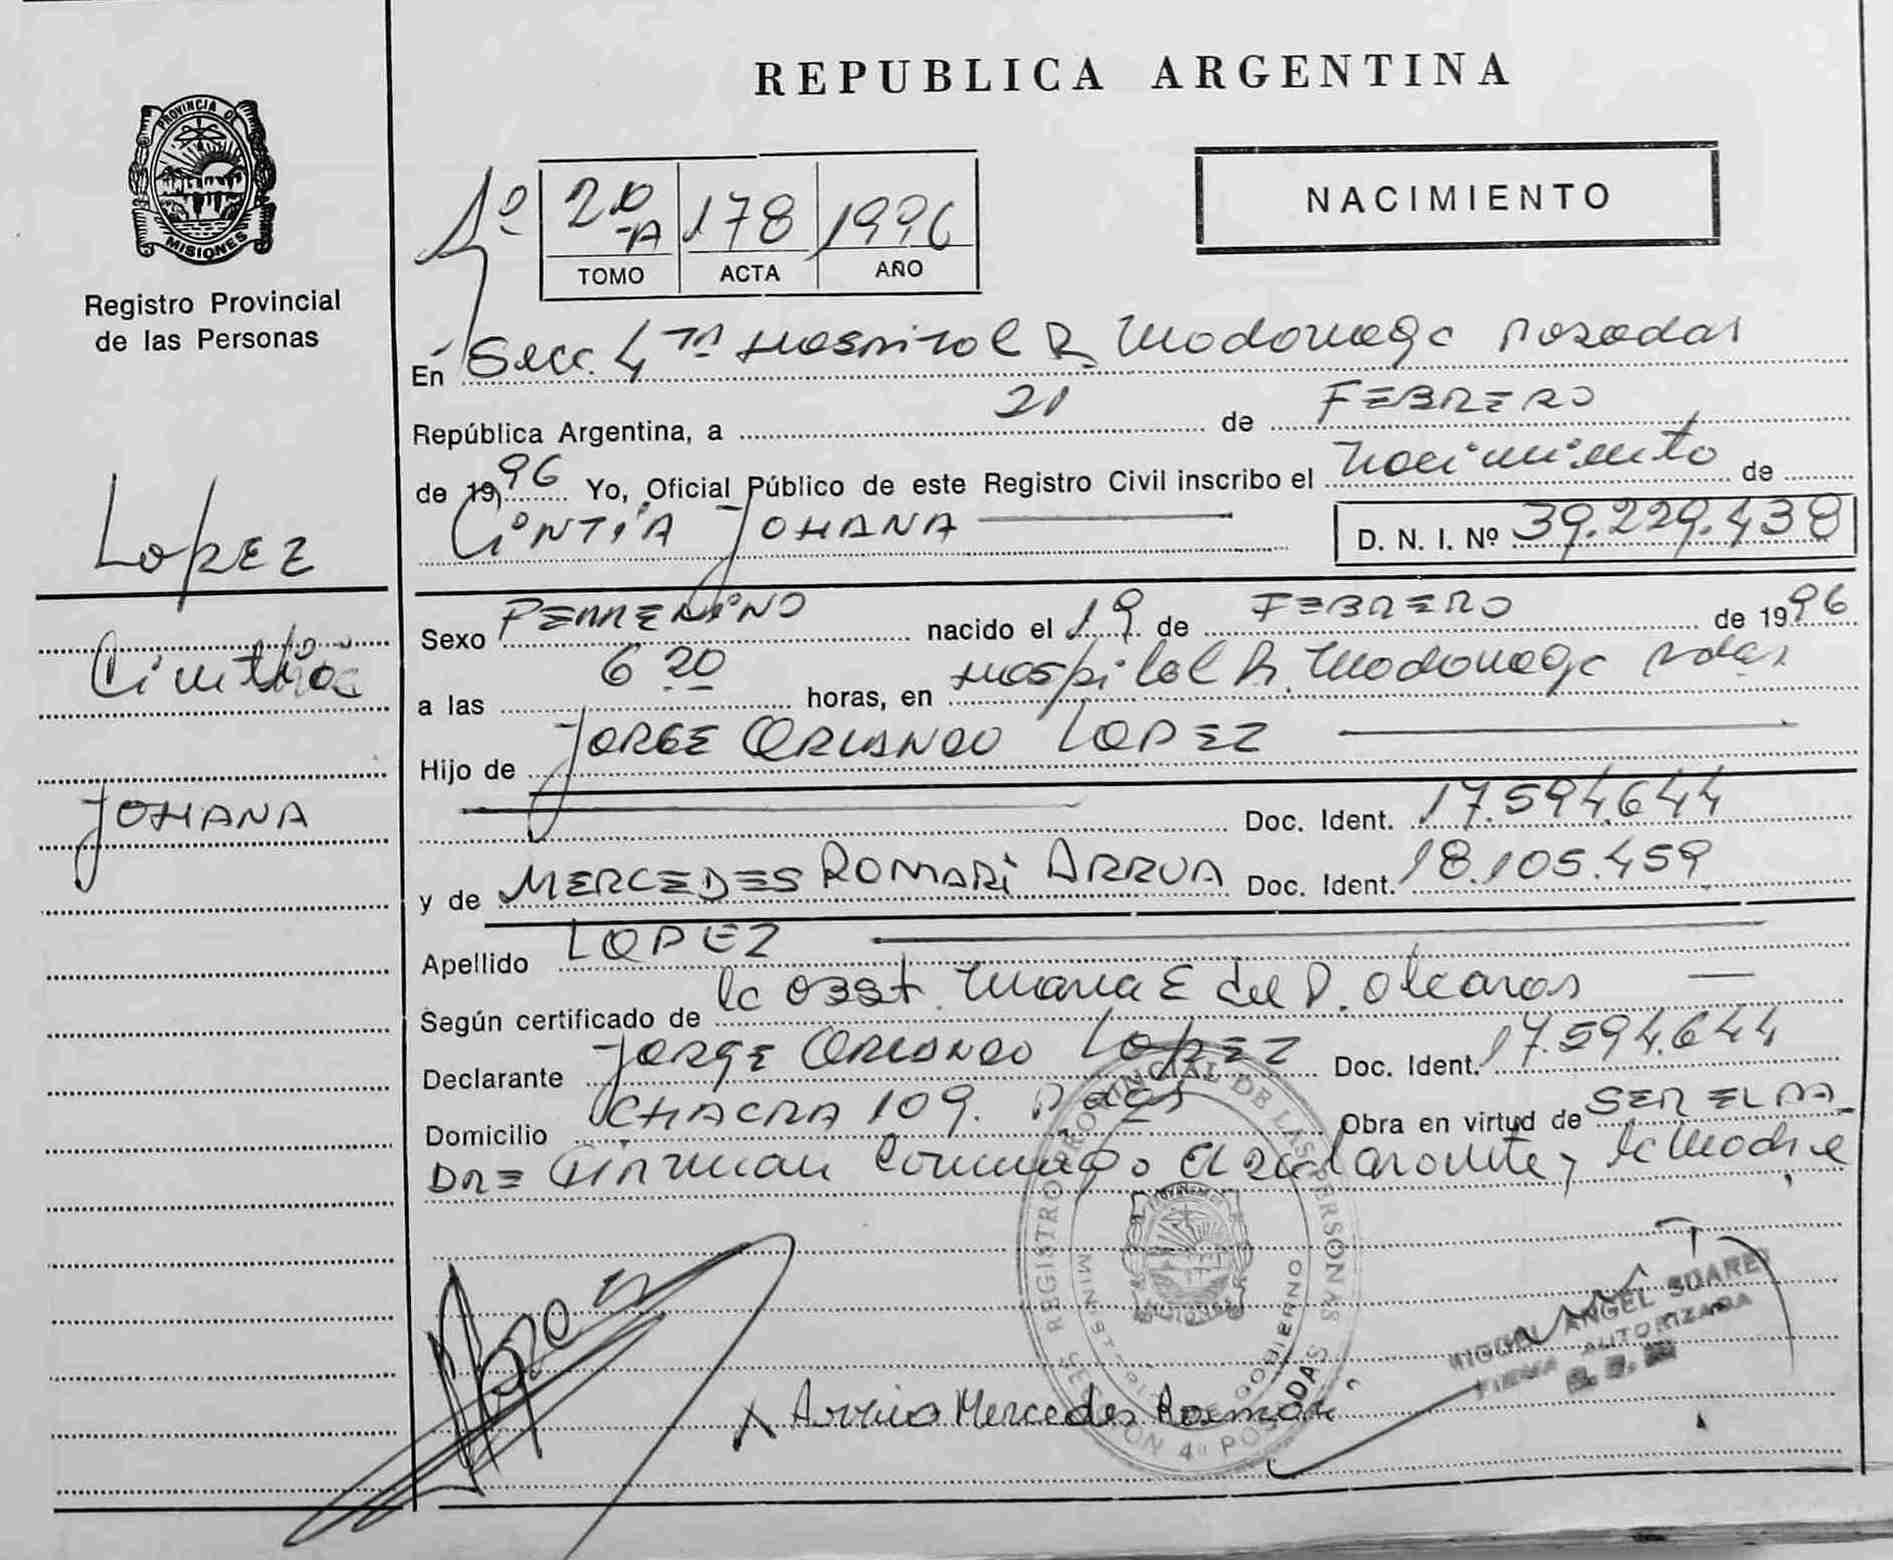 REPUBLICA ARGENTINA
PROVINCIA DE MISIONES
Registro Provincial
de las Personas
1º 2º -A 178 1996
TOMO ACTA AÑO
NACIMIENTO
En Secc. 4ta Hospital R. Madariaga Posadas
República Argentina, a 21 de FEBRERO
de 1996 Yo, Oficial Público de este Registro Civil inscribo el Nacimiento de
CINTIA JOHANA D. N. I. Nº 39.229.438
Sexo FEMENINO nacido el 19 de FEBRERO de 1996
a las 6 20 horas, en Hospital R. Madariaga Pdas
Hijo de JORGE ORLANDO LOPEZ
Doc. Ident. 17.594.644
y de MERCEDES ROMARI ARRUA Doc. Ident. 18.105.459
Apellido LOPEZ
Según certificado de la Obst. Maria E del P.
Declarante JORGE ORLANDO LOPEZ Doc. Ident. 17.594.644
Domicilio CHACRA 109. Pdas Obra en virtud de SER EL PA-
DRE Firman conmigo el declarante y la Madre
LOPEZ
Cinthia
JOHANA
REGISTRO PROVINCIAL DE LAS PERSONAS
MINISTE DE GOBIERNO
SECCION 4ª POSADAS
Arrua Mercedes Romari
MIGUEL ANGEL SUAREZ
FIRMA AUTORIZADA